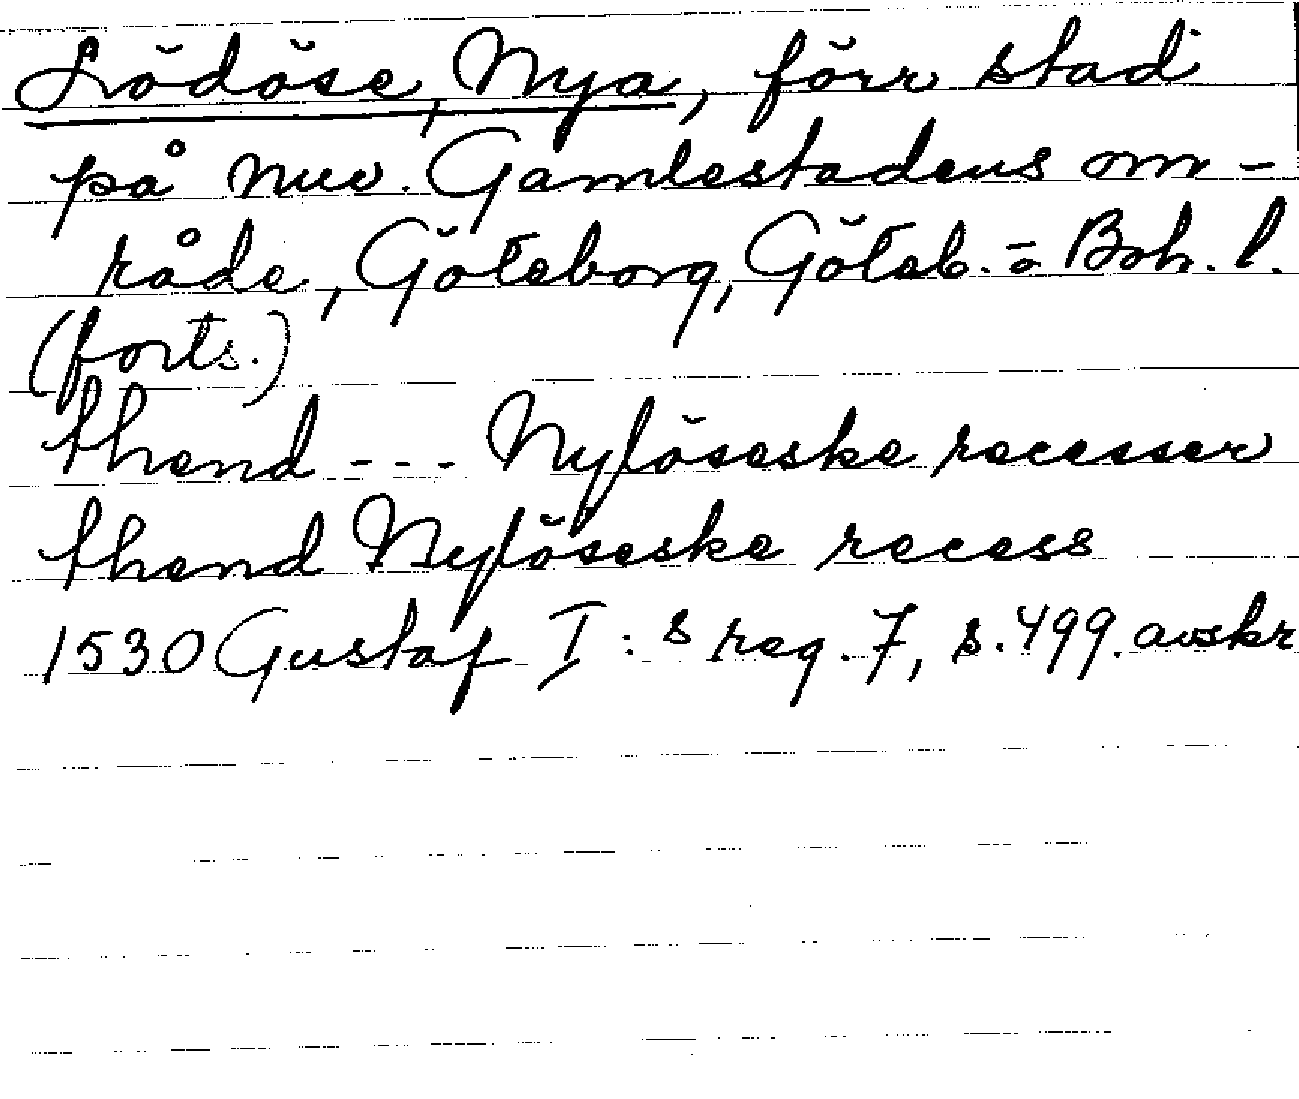 Lödöse, Nya, förr stad
på nuv. Gamlestadens om-
råde, Göteborg, Göteb. o. Boh. l.
(forts.)
thend --- Nylöseske recesser
thend Nylöseske recess
1530 Gustaf I:s reg. 7, s. 499. avskr